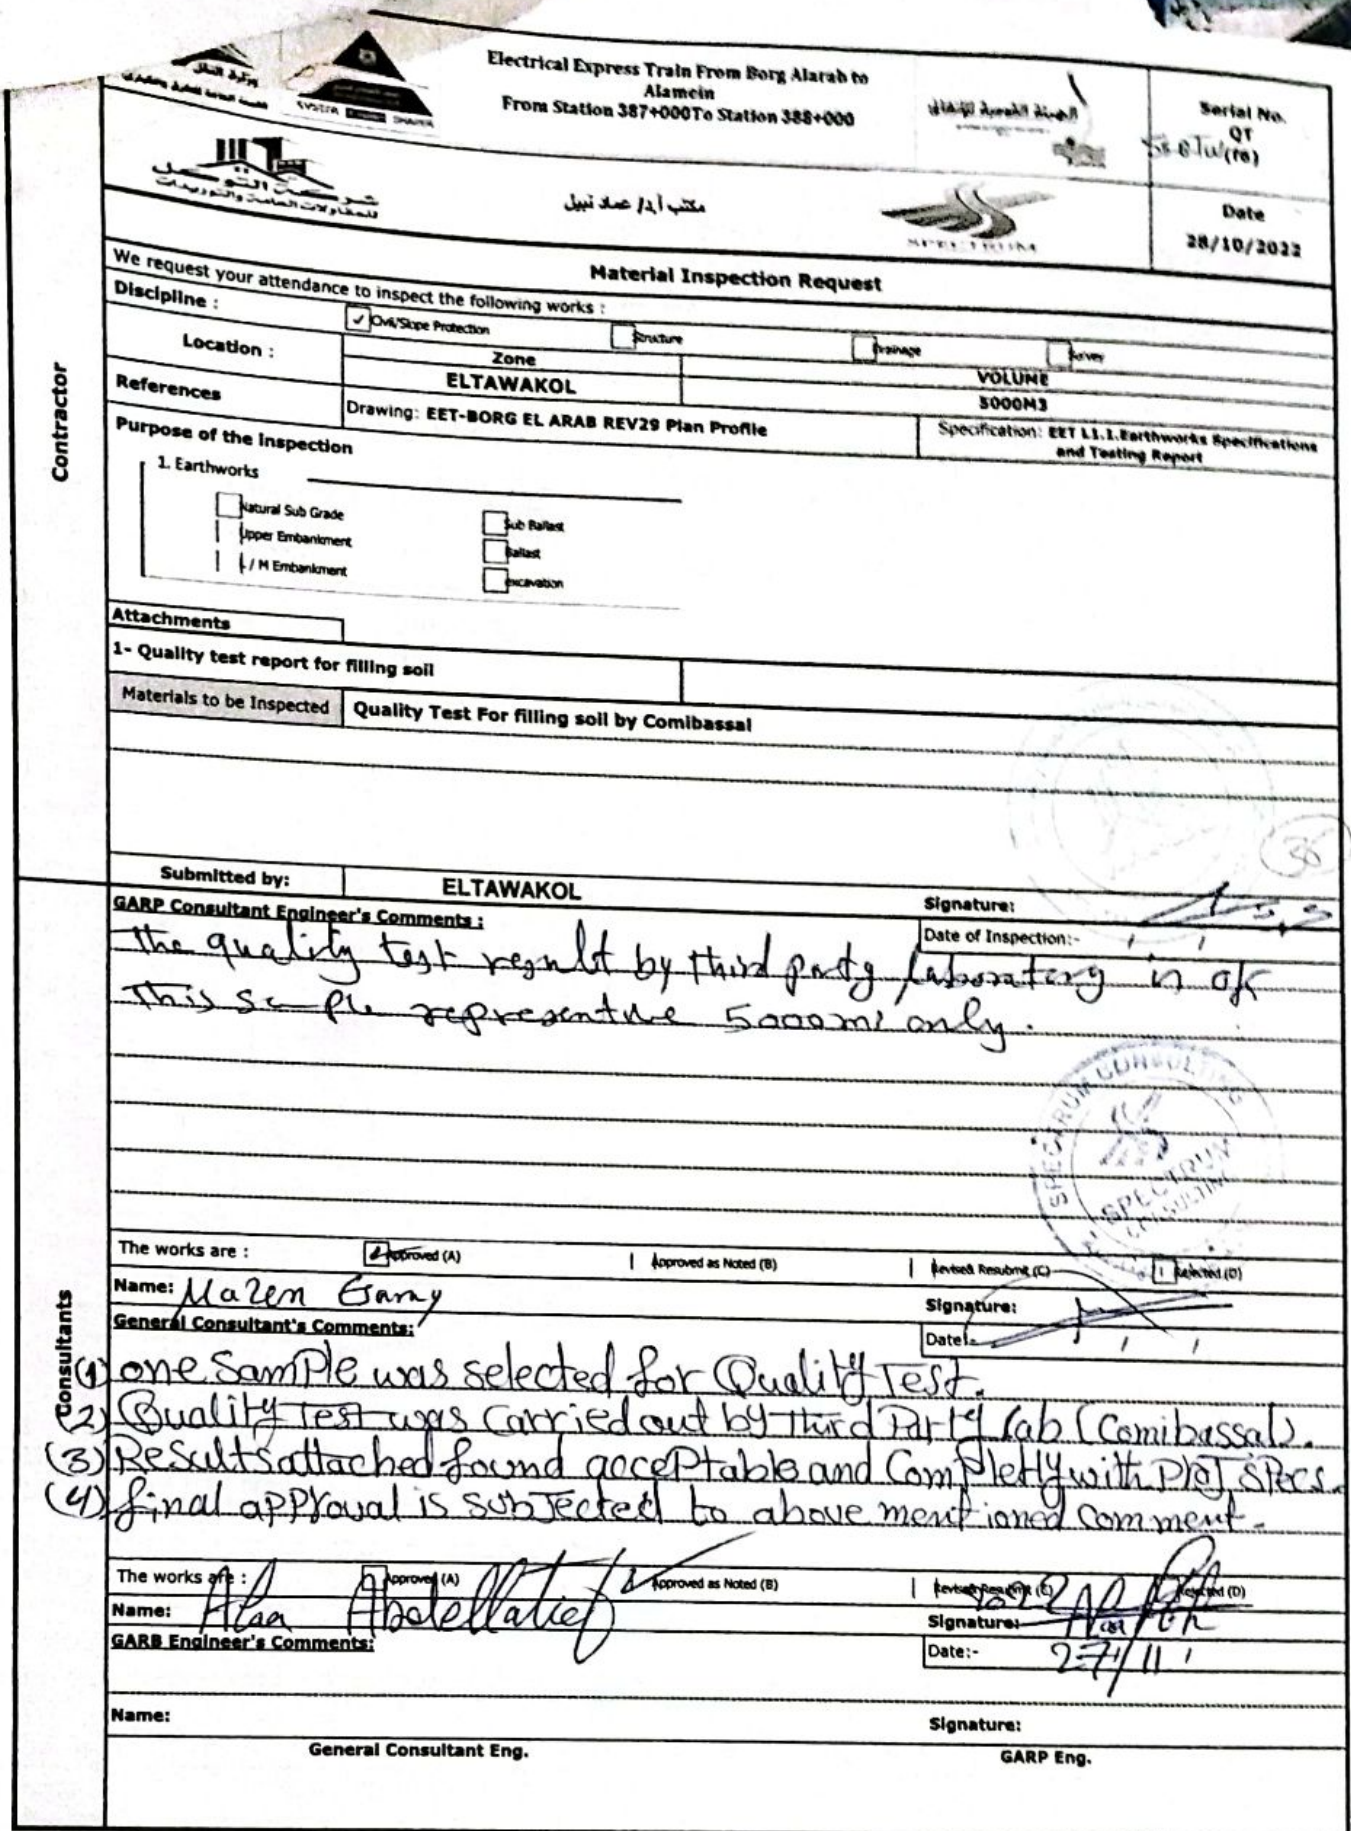 Electrical Express Train From Borg Alarab to
Alamein
From Station 387+000To Station 388+000
الهيئة القومية للإنفاق
Serial No.
QT
(10)
وزارة النقل
SYSTRA SHAKER
شركة التوكل
للمقاولات العامة والتوريدات
مكتب أ.د/ عماد نبيل
SPECTRUM
Date
28/10/2022
Material Inspection Request
We request your attendance to inspect the following works :
Discipline :
✓ Civil/Slope Protection
Structure
Drainage
Survey
Location :
Zone
VOLUME
ELTAWAKOL
5000M3
References
Drawing: EET-BORG EL ARAB REV29 Plan Profile
Specification: EET L1.1.Earthworks Specifications
and Testing Report
Purpose of the Inspection
1. Earthworks
Natural Sub Grade
Sub Ballast
Upper Embankment
Ballast
L / M Embankment
excavation
Attachments
1- Quality test report for filling soil
Materials to be Inspected
Quality Test For filling soil by Comibassal
36
Submitted by:
ELTAWAKOL
Signature:
GARP Consultant Engineer's Comments :
Date of Inspection:- / /
the quality test result by third party laboratory is ok
this sample representive 5000m3 only.
SPECTRUM CONSULTING
SPECTRUM
CONSULTING
The works are :
Approved (A)
Approved as Noted (B)
Revise& Resubmit (C)
Rejected (D)
Name: Mazen Gamy
Signature:
General Consultant's Comments:
Date:- / /
(1) one Sample was selected for Quality Test.
(2) Quality Test was Carried out by third Party lab (Comibassal).
(3) Results attached found acceptable and Completly with PROJ, SPecs.
(4) final approval is subjected to above mentioned comment.
The works are :
Approved (A)
✓ Approved as Noted (B)
Revise& Resubmit (C)
Rejected (D)
Name: Alaa Abdellatief
Signature:
GARB Engineer's Comments:
Date:- 27/11/
Name:
Signature:
General Consultant Eng.
GARP Eng.
Contractor
Consultants